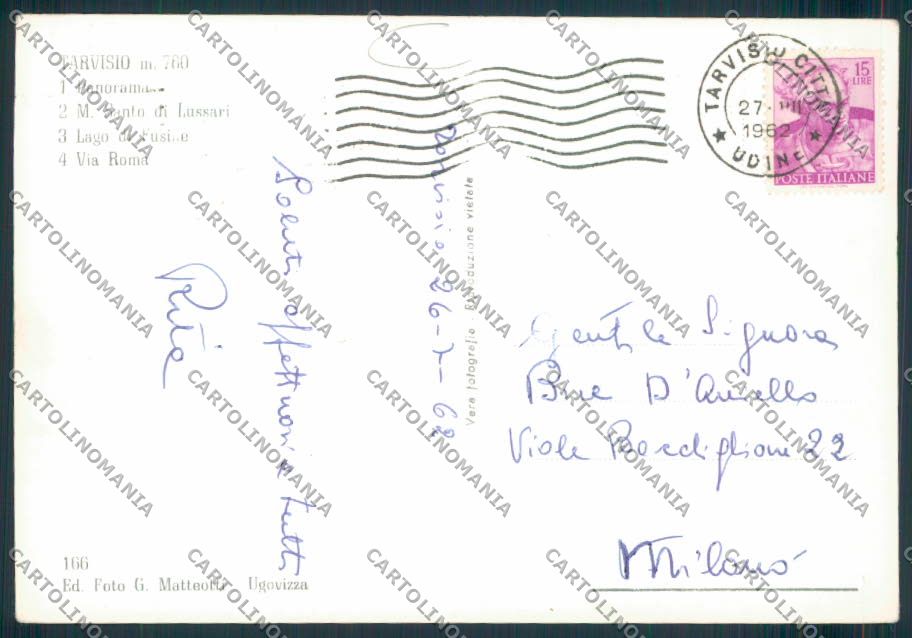 TARVISIO m. 760
1 Panorama
2 M. Santo di Lussari
3 Lago di Fusine
4 Via Roma
TARVISIO CITTÀ
27-VII
1962
UDINE
15
LIRE
POSTE ITALIANE
Tarvisio 26-7-62
Saluti affettuosi a tutti
Rita
Vera fotografia Riproduzione vietata
Gentile Signora
D'Aniello
Viale 22
Milano
166
Ed. Foto G. Matteotti Ugovizza
CARTOLINOMANIA